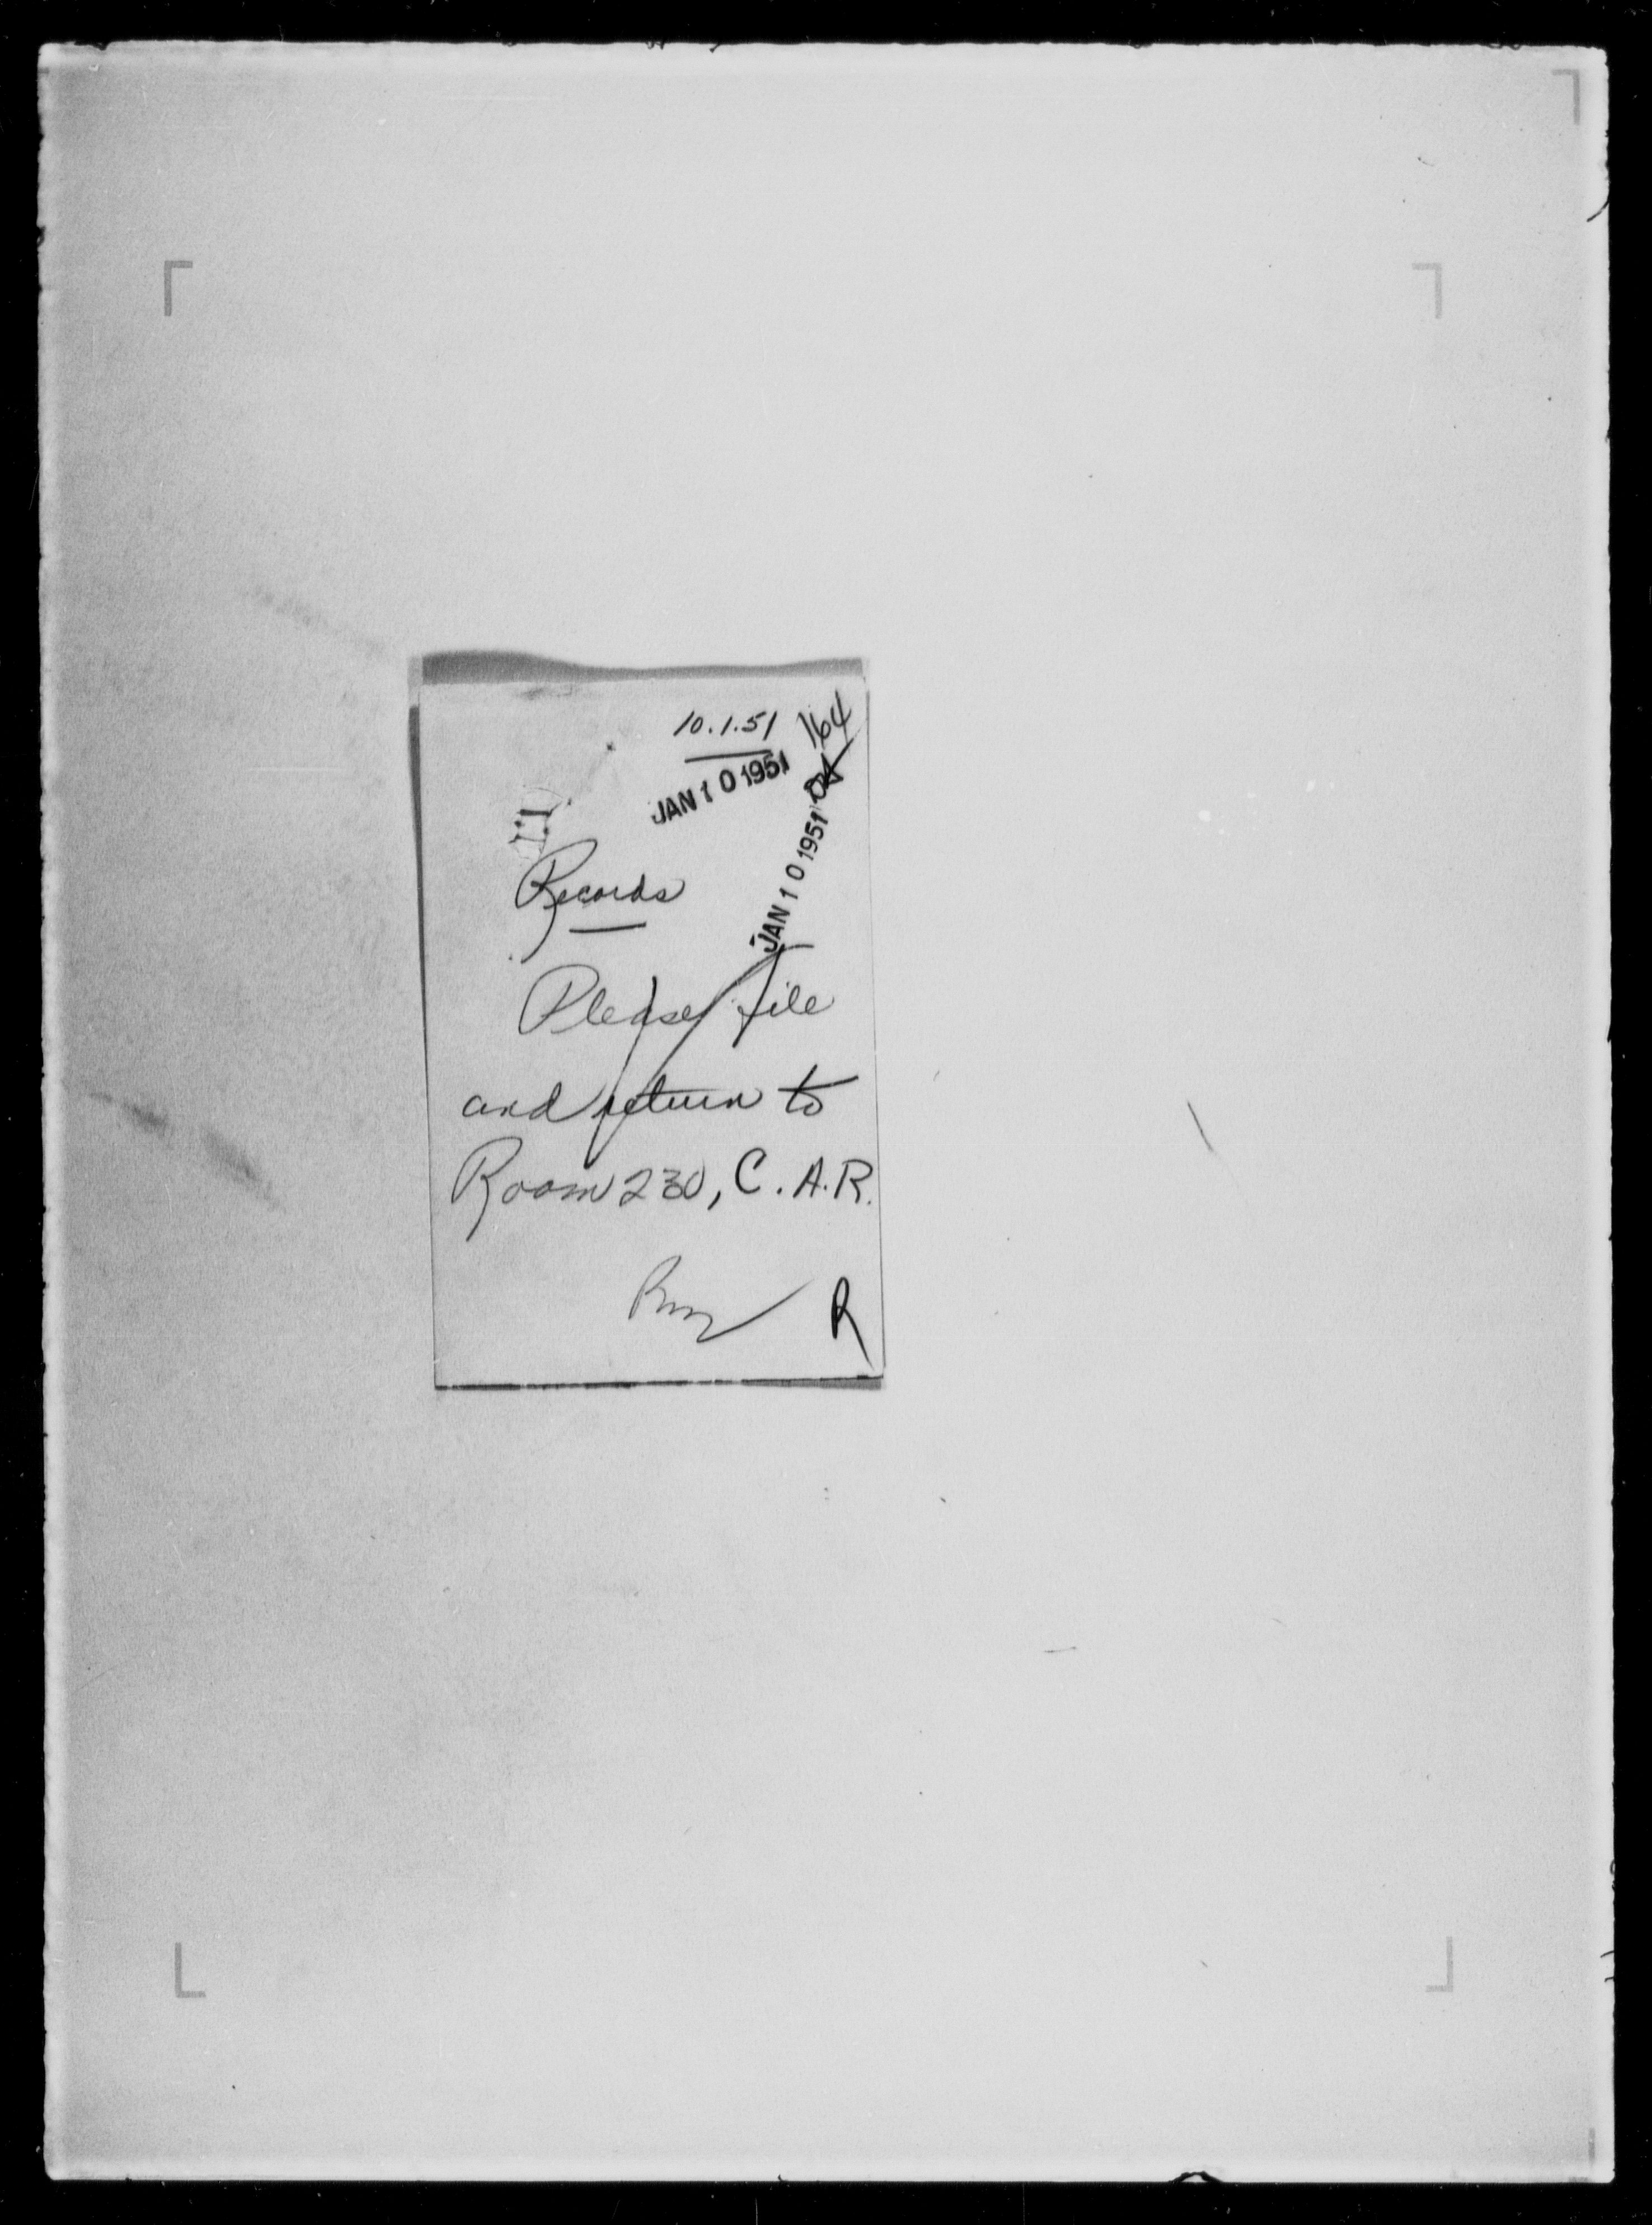 10.1.51 164
JAN 10 1951
JAN 10 1951
Records
Please file
and return to
Room 230, C. A. R.
R